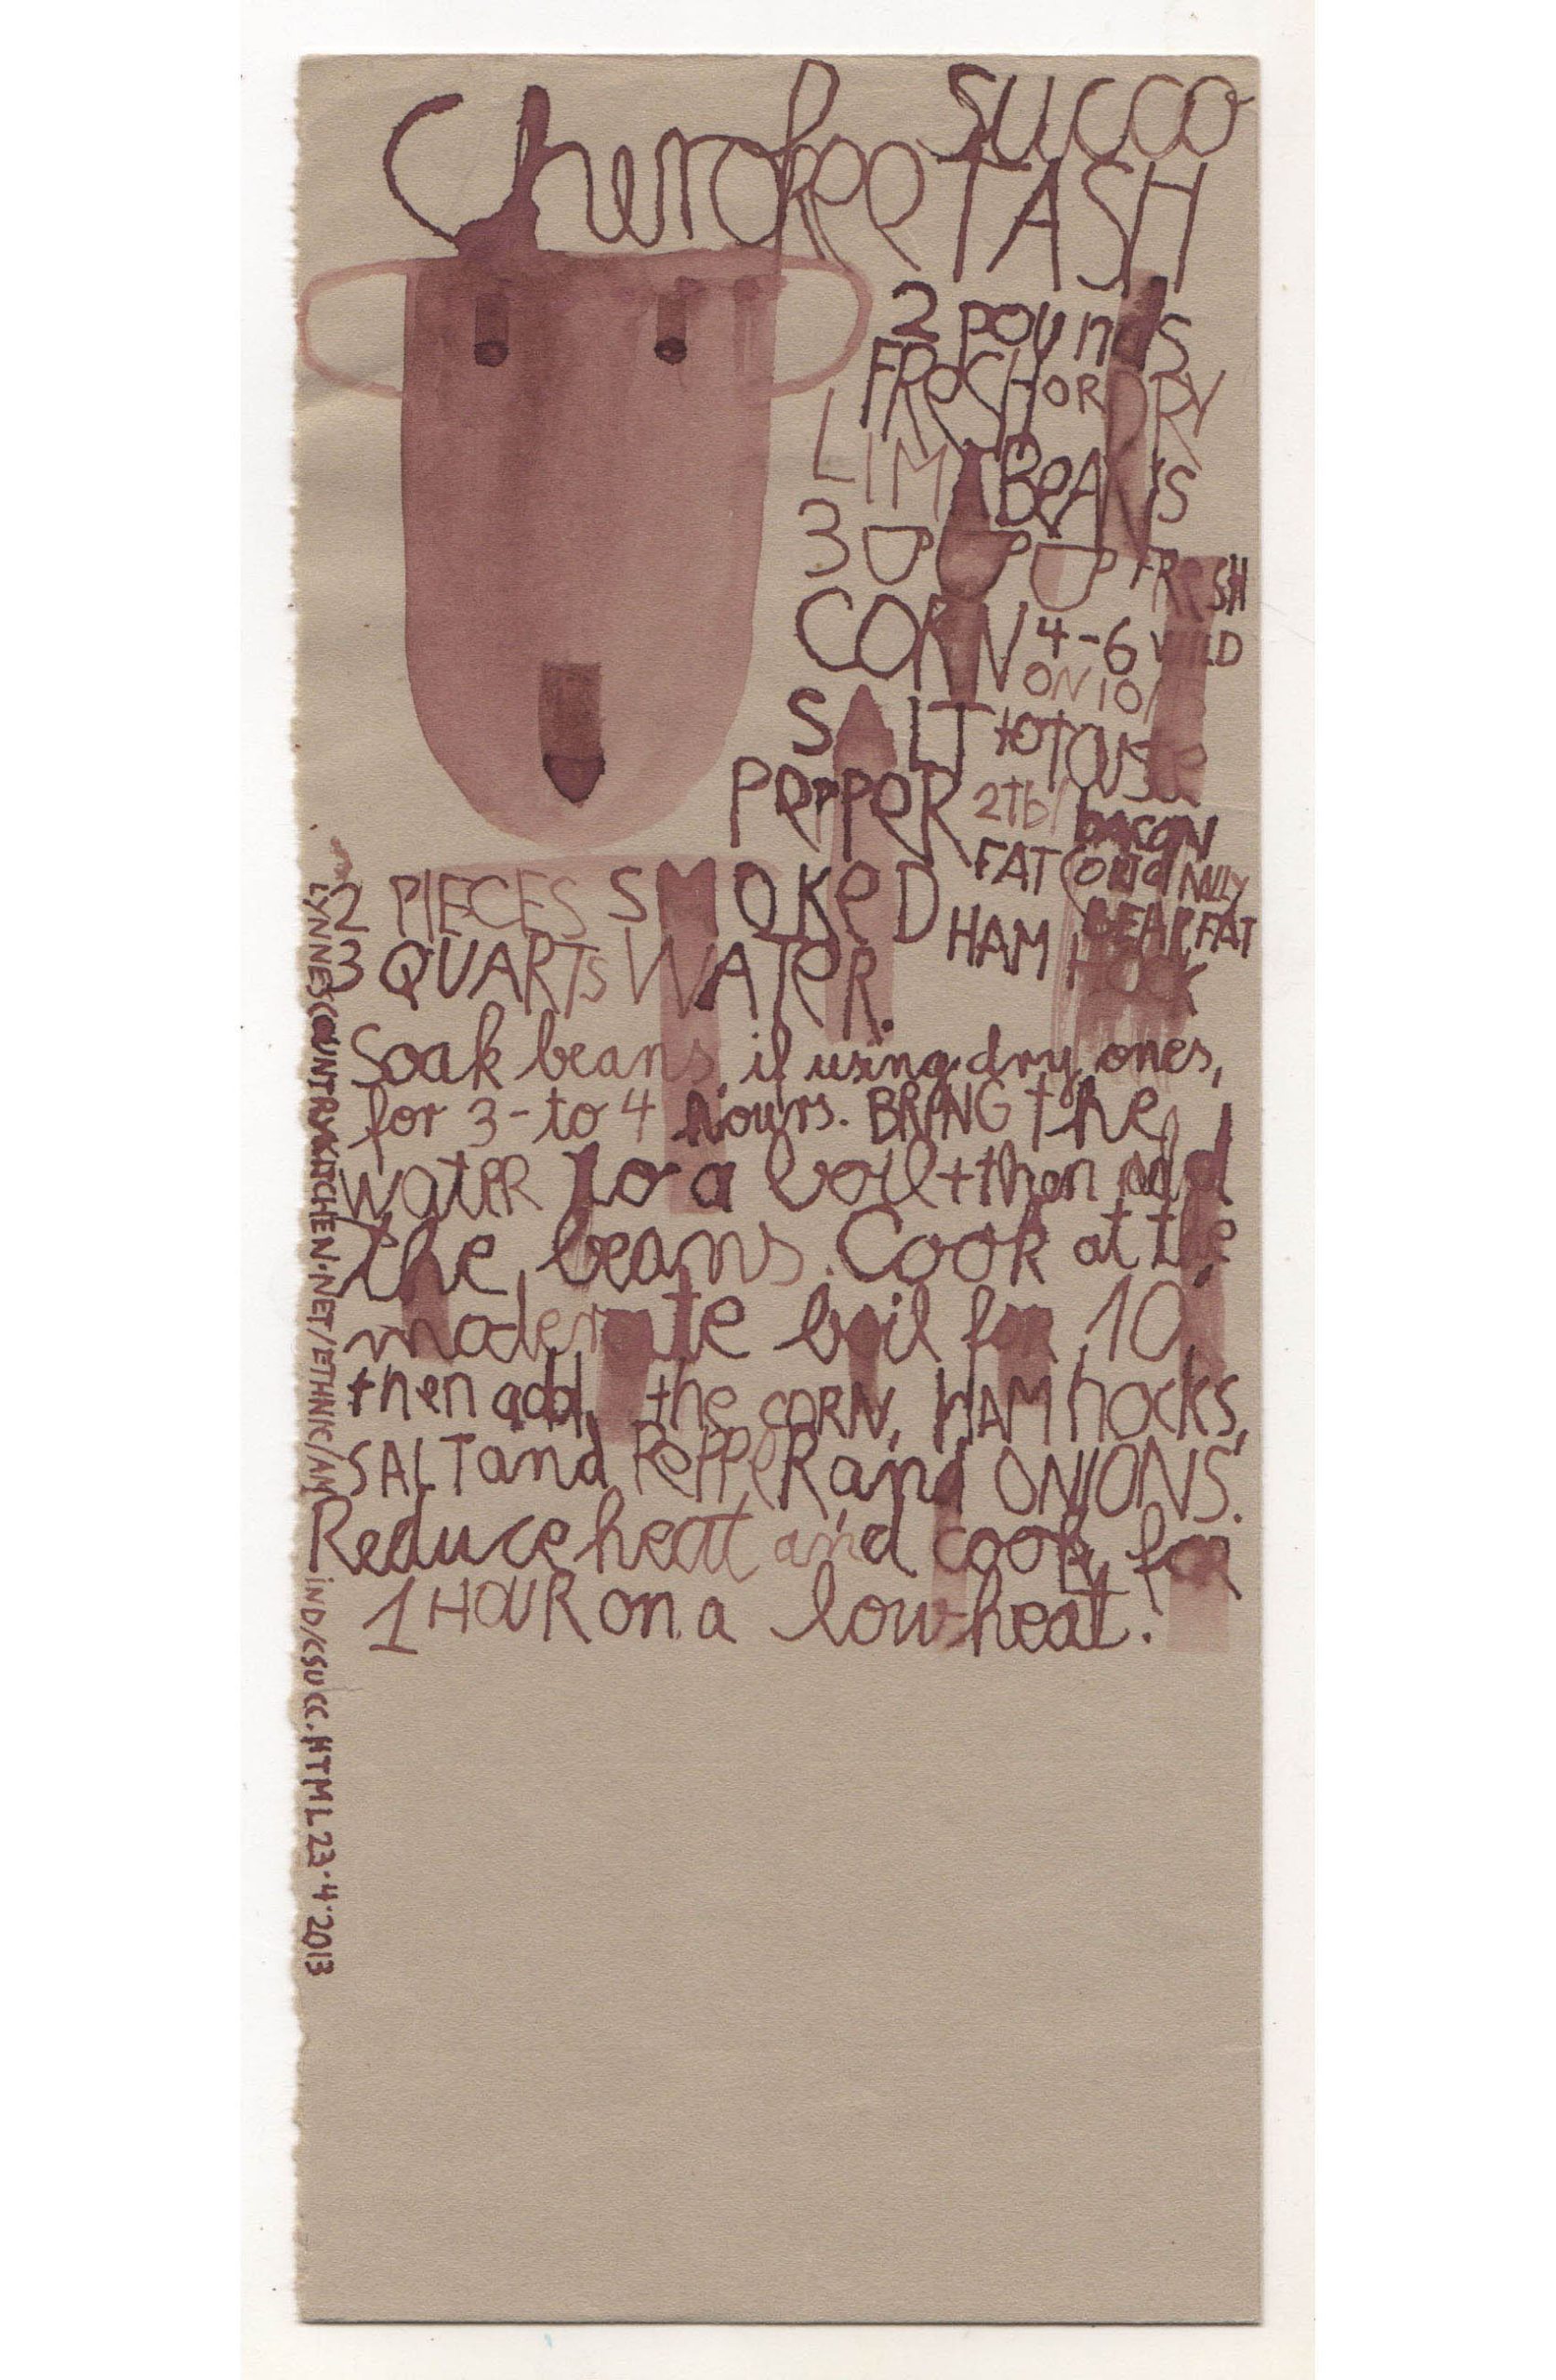 Cherokee SUCCO
TASH
2 pounds
FReSH OR DRY
LIMA BeANS
3 FReSH
CORN 4-6 WILD
ONION
SALT to TASTe
PePPeR 2tbl bacon
FAT (ORIGINALLY
BEAR FAT
2 PIECES SMOKeD HAM HOCK
3 QUARTs WATeR.
Soak beans, if using dry ones,
for 3-to 4 hours. BRING the
wateR to a boil + then add
the beans. Cook at the
moderate boil for 10,
then add, the CORN, HAM hocks,
SALT and PePPeR and ONIONS.
Reduce heat and cook for
1 HOUR on a low heat.
LYNNESCOUNTRYKITCHEN.NET/ETHNIC/AMIND/CSUCC.HTML 23.4.2013